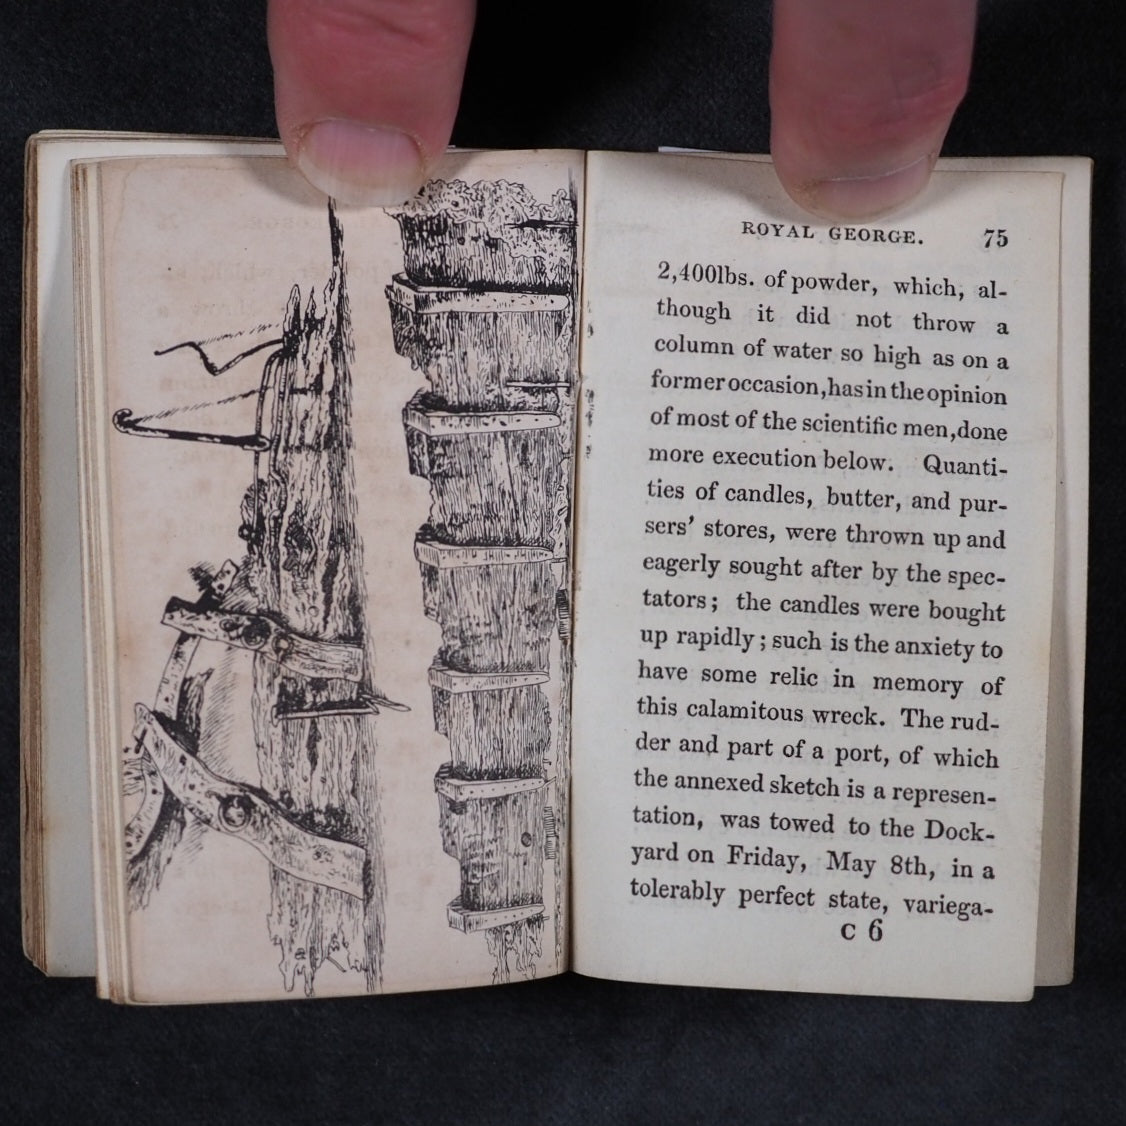 ROYAL GEORGE. 75
2,400lbs. of powder, which, al-
though it did not throw a
column of water so high as on a
former occasion, has in the opinion
of most of the scientific men, done
more execution below. Quanti-
ties of candles, butter, and pur-
sers' stores, were thrown up and
eagerly sought after by the spec-
tators; the candles were bought
up rapidly; such is the anxiety to
have some relic in memory of
this calamitous wreck. The rud-
der and part of a port, of which
the annexed sketch is a represen-
tation, was towed to the Dock-
yard on Friday, May 8th, in a
tolerably perfect state, variega-
C 6